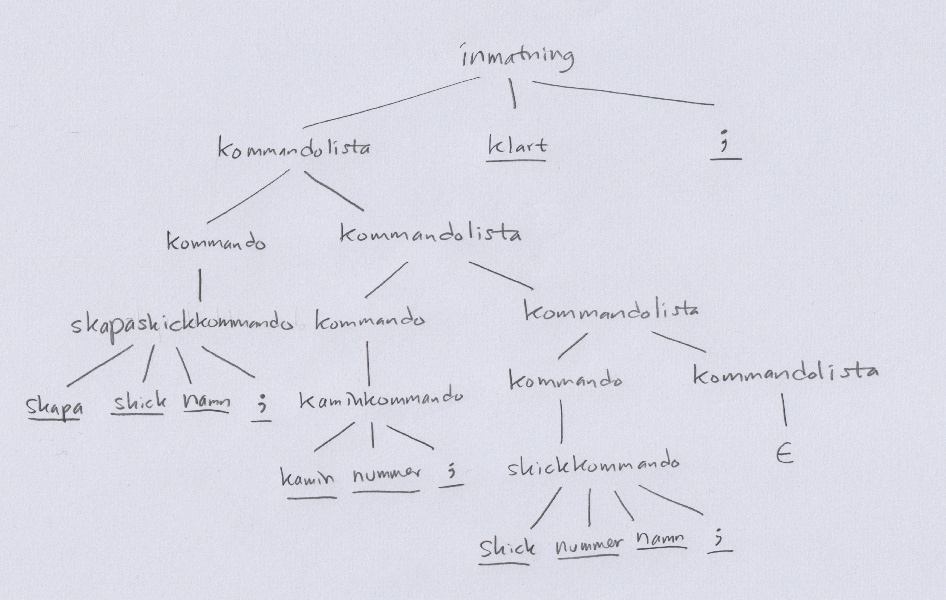 inmatning
kommandolista klart ;
kommando kommandolista
skapaskickkommando kommando kommandolista
skapa skick namn ; kaminkommando kommando kommandolista
kamin nummer ; skickkommando ϵ
skick nummer namn ;